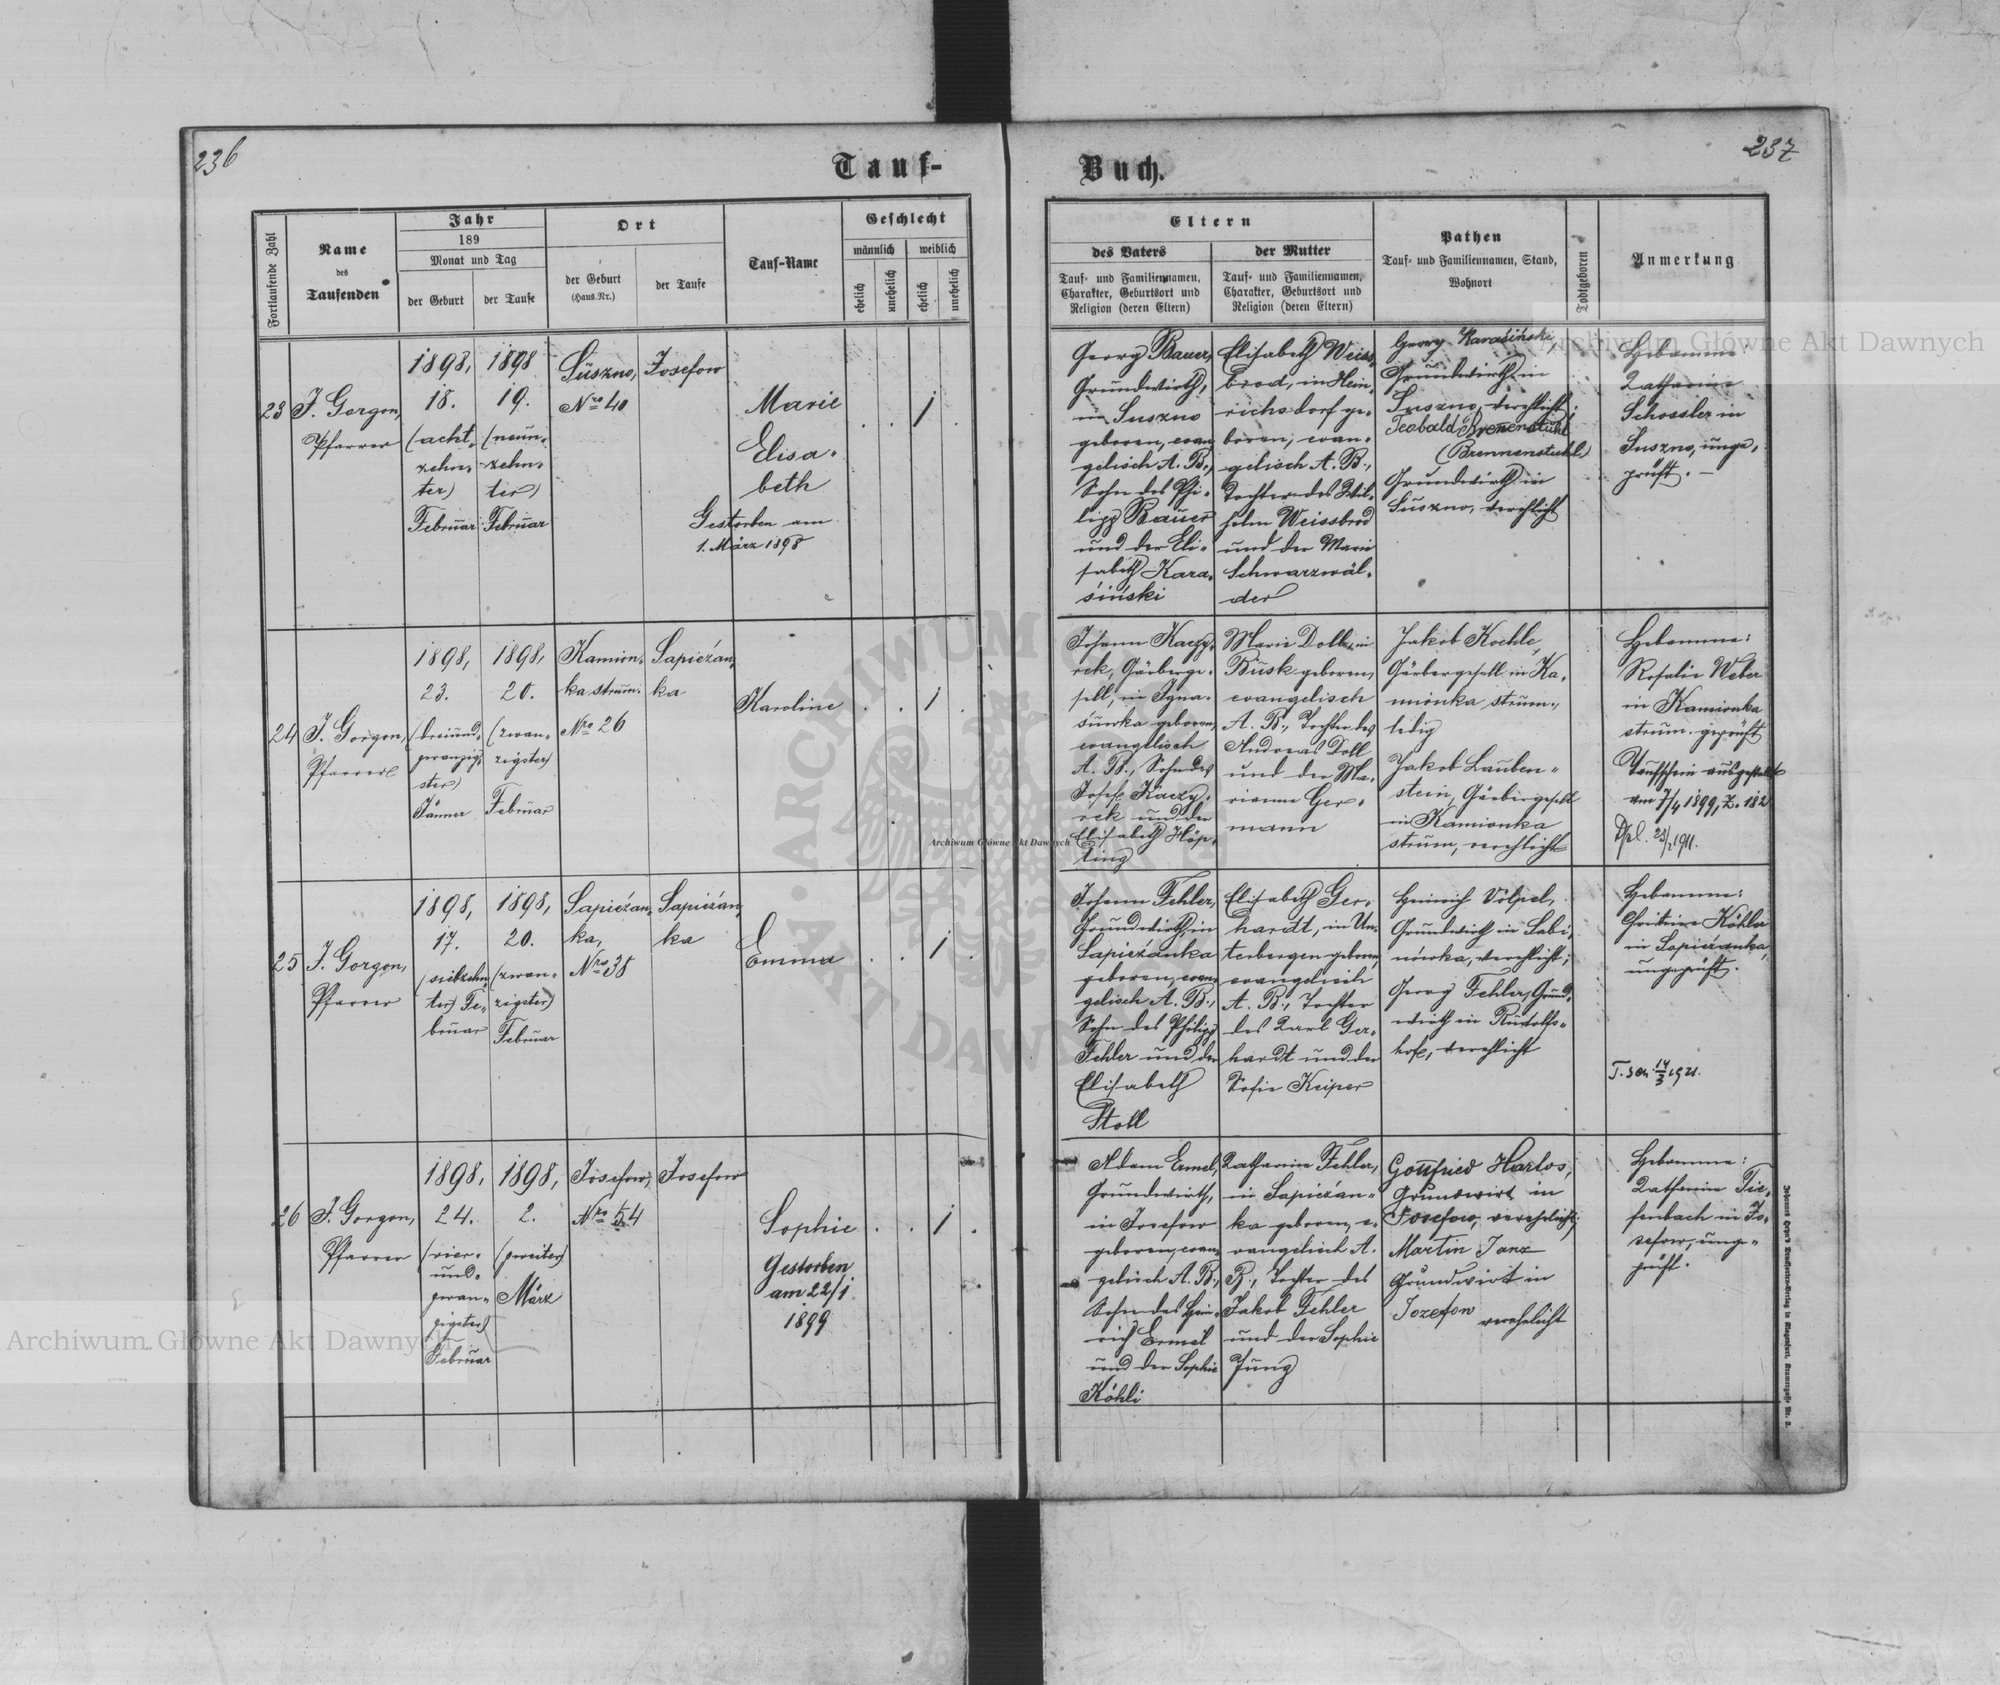 236
237
Tauf-
Buch.
Fortlaufende Zahl
Name
des
Taufenden
Jahr
189
Monat und Tag
der Geburt
der Taufe
Ort
der Geburt
(Haus.Nr.)
der Taufe
Tauf-Name
Geschlecht
männlich
weiblich
ehelich
unehelich
ehelich
unehelich
Eltern
des Vaters
Tauf- und Familiennamen,
Charakter, Geburtsort und
Religion (deren Eltern)
der Mutter
Tauf- und Familiennamen,
Charakter, Geburtsort und
Religion (deren Eltern)
Pathen
Tauf- und Familiennamen, Stand,
Wohnort
Todtgeboren
Anmerkung
23
J. Gorgon,
Pfarrer
1898,
18.
(acht-
zehn-
ter)
Februar
1898
19.
(neun-
zehn-
ter)
Februar
Suszno,
Nro 40
Josefow
Marie
Elisa-
beth
Gestorben am
1. März 1898
. . 1 .
Georg Bauer,
Grundwirth,
in Suszno
geboren, evan
gelisch A. B.,
Sohn des Phi-
lipp Bauer
und der Eli-
sabeth Kara-
siński
Elisabeth Weiss-
brod, in Hein-
richsdorf ge-
boren, evan-
gelisch A. B.,
Tochter des Wil-
helm Weissbrod
und der Marie
Schwarzwäl-
der
Georg Karasiński,
Grundwirth in
Suszno, verehlicht;
Teobald Brenenstuhl
(Brennenstuhl)
Grundwirth in
Suszno, verehlicht
Hebamme:
Katharine
Schossler in
Suszno, unge-
prüft. —
24
J. Gorgon,
Pfarrer
1898,
23.
(dreiund-
zwanzig-
ster)
Jänner
1898,
20.
(zwan-
zigster)
Februar
Kamion-
ka strum.
Nro 26
Sapieżan-
ka
Karoline
. . 1 .
Johann Kaczy-
rek, Gärberge-
sell, in Igna-
sówka geboren,
evangelisch
A. B., Sohn des
Josef Kaczy-
rek und der
Elisabeth Höp-
ting
Marie Doll, in
Busk geboren,
evangelisch
A. B., Tochter des
Andreas Doll
und der Ma-
rianne Ger-
mann
Jakob Koehle,
Gärbergesell in Ka-
mionka strum.,
ledig
Jakob Lauben-
stein, Gärbergesell
in Kamionka
strum, verehlicht
Hebamme:
Rosalie Weber
in Kamionka
strum. geprüft
Taufschein ausgestellt
am 7/4 1899, Z. 182
25
J. Gorgon,
Pfarrer
1898,
17.
(siebzehn-
ter) Fe-
bruar
1898,
20.
(zwan-
zigster)
Februar
Sapieżan-
ka,
Nro 38
Sapieżan-
ka
Emma
. . 1 .
Johann Fehler,
Grundwirth in
Sapieżanka
geboren, evan-
gelisch A. B.,
Sohn des Philipp
Fehler und der
Elisabeth
Stoll
Elisabeth Ger-
hardt, in Un-
terbergen geboren,
evangelisch
A. B., Tochter
des Karl Ger-
hardt und der
Sofie Keiper
Heinrich Völpel,
Grundwirth in Sabi-
nówka, verehlicht;
Georg Fehler, Grund-
wirth in Rudolfs-
hof, verehlicht
Hebamme:
Christine Köhler
in Sapieżanka,
ungeprüft.
26
J. Gorgon,
Pfarrer
1898,
24.
(vier-
und-
zwan-
zigster)
Februar
1898,
2.
(zweiter)
März
Josefow,
Nro 54
Josefow
Sophie
Gestorben
am 22/1
1899
. . 1 .
Adam Ermel,
Grundwirth,
in Josefow
geboren, evan-
gelisch A. B.,
Sohn des Hein-
rich Ermel
und der Sophie
Köhli
Katharine Fehler,
in Sapieżan-
ka geboren, e-
vangelisch A.
B., Tochter des
Jakob Fehler
und der Sophie
Jung
Gottfried Harlos,
Grundwirt in
Josefow, verehelicht;
Martin Janz
Grundwirt in
Jozefow verehelicht
Hebamme:
Katharine Tie-
fenbach in Jo-
sefow, unge-
prüft.
Archiwum Główne Akt Dawnych
Archiwum Główne Akt Dawnych
Archiwum Główne Akt Dawnych
ARCHIWUM
AKT DAWNYCH